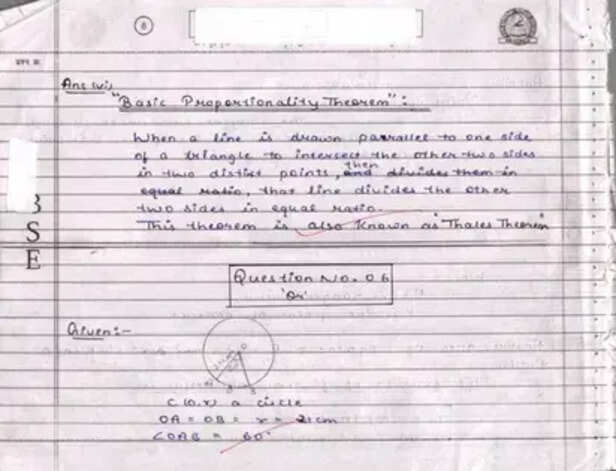 6
Ans (vi)
"Basic Proportionality Theorem" :
When a line is drawn parrallel to one side
of a triangle to intersect the other two sides
in two distict points, then and divides them in
equal ratio, that line divides the other
two sides in equal ratio.
This theorem is also known as "Thales Theorem"
B
S
E
Question No. 06
'Or'
Given:-
O
C(O,r) a circle
OA = OB = r = 21 cm
∠OAB = 60°